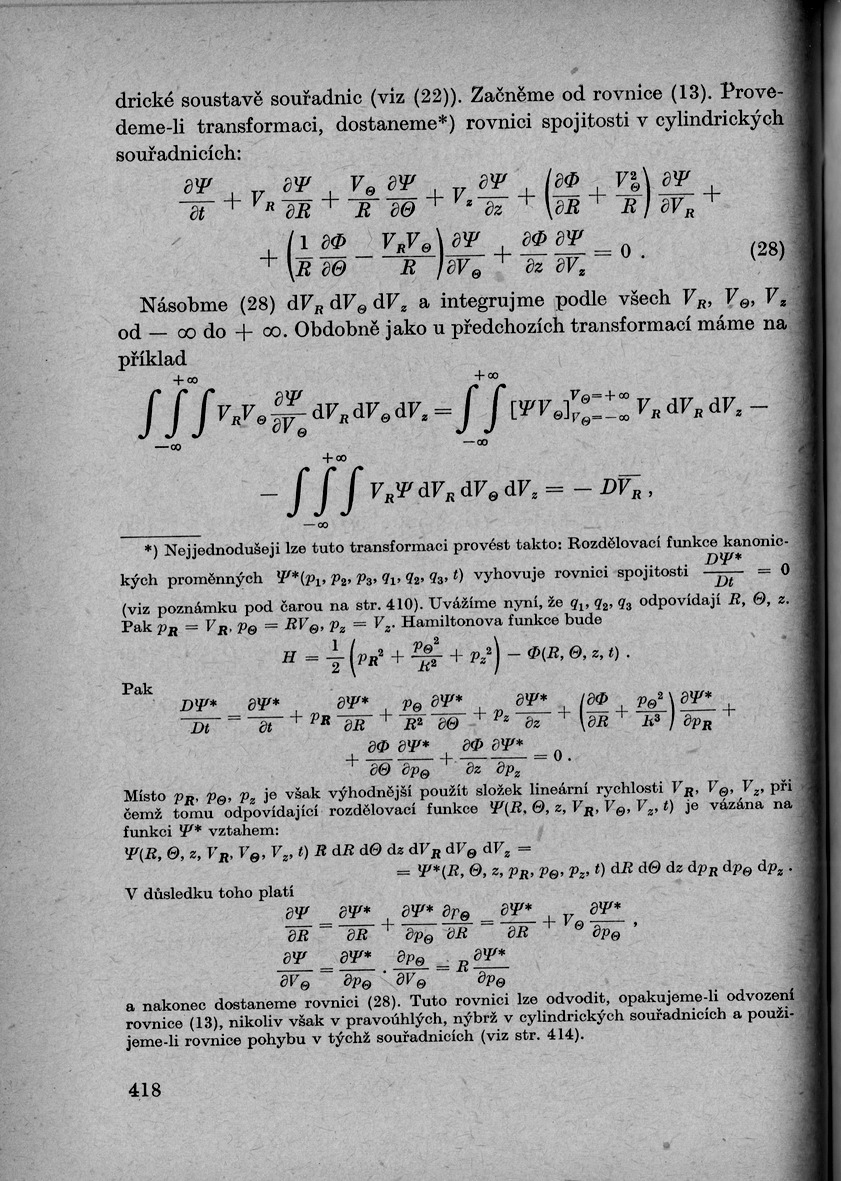 drické soustavě souřadnic (viz (22)). Začněme od rovnice (13). Prove-
deme-li transformaci, dostaneme*) rovnici spojitosti v cylindrických
souřadnicích:
∂Ψ/∂t + V_R ∂Ψ/∂R + V_Θ/R ∂Ψ/∂Θ + V_z ∂Ψ/∂z + (∂Φ/∂R + V_Θ²/R) ∂Ψ/∂V_R +
+ (1/R ∂Φ/∂Θ − V_R V_Θ/R) ∂Ψ/∂V_Θ + ∂Φ/∂z ∂Ψ/∂V_z = 0 . (28)
Násobme (28) dV_R dV_Θ dV_z a integrujme podle všech V_R, V_Θ, V_z
od — ∞ do + ∞. Obdobně jako u předchozích transformací máme na
příklad
∫∫∫_{−∞}^{+∞} V_R V_Θ ∂Ψ/∂V_Θ dV_R dV_Θ dV_z = ∫∫_{−∞}^{+∞} [ΨV_Θ]_{V_Θ=−∞}^{V_Θ=+∞} V_R dV_R dV_z −
− ∫∫∫_{−∞}^{+∞} V_R Ψ dV_R dV_Θ dV_z = − D\overline{V_R} ,
*) Nejjednodušeji lze tuto transformaci provést takto: Rozdělovací funkce kanonic-
kých proměnných Ψ*(p₁, p₂, p₃, q₁, q₂, q₃, t) vyhovuje rovnici spojitosti DΨ*/Dt = 0
(viz poznámku pod čarou na str. 410). Uvážíme nyní, že q₁, q₂, q₃ odpovídají R, Θ, z.
Pak p_R = V_R, p_Θ = RV_Θ, p_z = V_z. Hamiltonova funkce bude
H = 1/2 (p_R² + p_Θ²/R² + p_z²) − Φ(R, Θ, z, t) .
Pak
DΨ*/Dt = ∂Ψ*/∂t + p_R ∂Ψ*/∂R + p_Θ/R² ∂Ψ*/∂Θ + p_z ∂Ψ*/∂z + (∂Φ/∂R + p_Θ²/R³) ∂Ψ*/∂p_R +
+ ∂Φ/∂Θ ∂Ψ*/∂p_Θ + ∂Φ/∂z ∂Ψ*/∂p_z = 0 .
Místo p_R, p_Θ, p_z je však výhodnější použít složek lineární rychlosti V_R, V_Θ, V_z, při
čemž tomu odpovídající rozdělovací funkce Ψ(R, Θ, z, V_R, V_Θ, V_z, t) je vázána na
funkci Ψ* vztahem:
Ψ(R, Θ, z, V_R, V_Θ, V_z, t) R dR dΘ dz dV_R dV_Θ dV_z =
= Ψ*(R, Θ, z, p_R, p_Θ, p_z, t) dR dΘ dz dp_R dp_Θ dp_z .
V důsledku toho platí
∂Ψ/∂R = ∂Ψ*/∂R + ∂Ψ*/∂p_Θ ∂p_Θ/∂R = ∂Ψ*/∂R + V_Θ ∂Ψ*/∂p_Θ ,
∂Ψ/∂V_Θ = ∂Ψ*/∂p_Θ · ∂p_Θ/∂V_Θ = R ∂Ψ*/∂p_Θ
a nakonec dostaneme rovnici (28). Tuto rovnici lze odvodit, opakujeme-li odvození
rovnice (13), nikoliv však v pravoúhlých, nýbrž v cylindrických souřadnicích a použi-
jeme-li rovnice pohybu v týchž souřadnicích (viz str. 414).
418